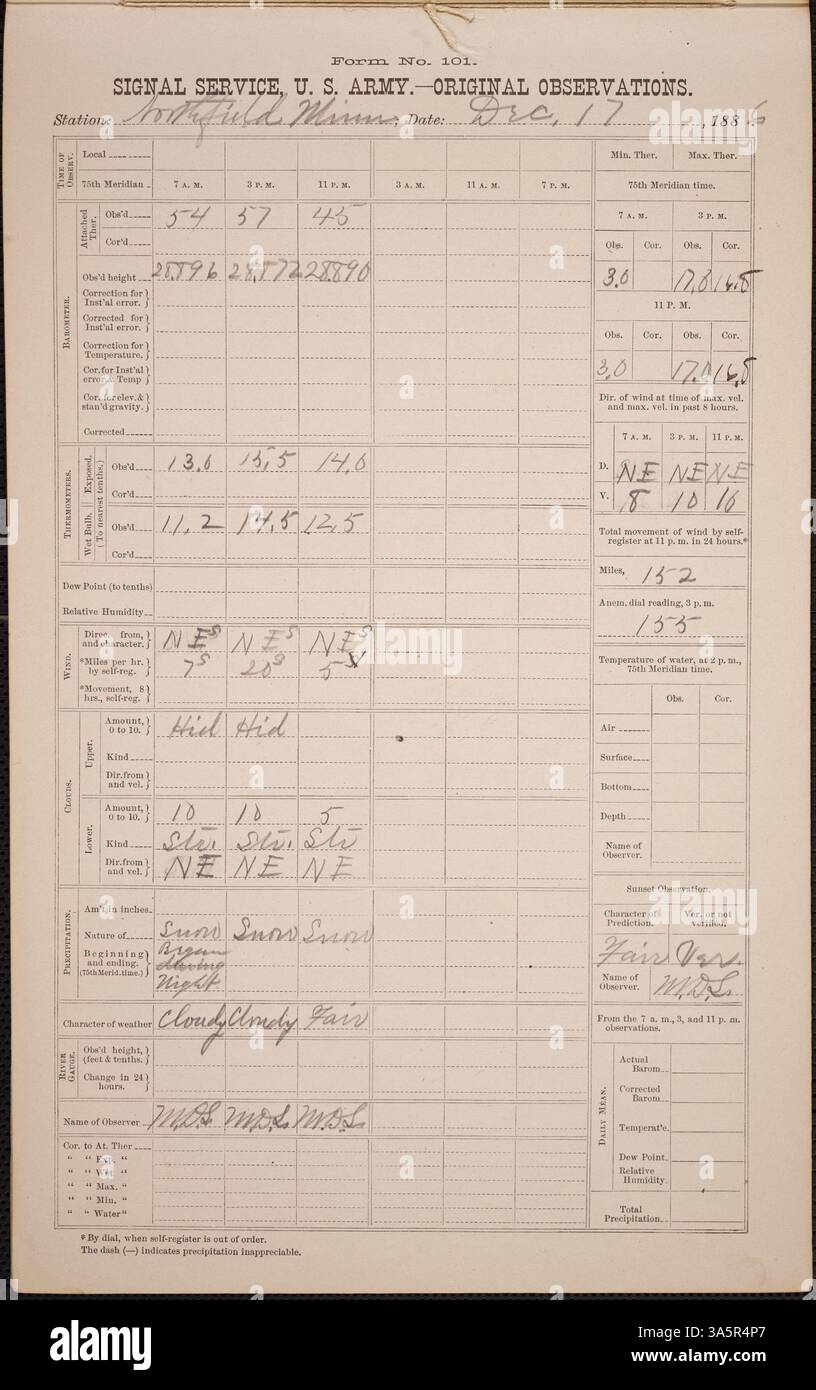 Form No. 101.
SIGNAL SERVICE, U. S. ARMY.—ORIGINAL OBSERVATIONS.
Station: Northfield Minn; Date: Dec. 17, 1886
TIME OF OBSERV.
Local
75th Meridian 7 A. M. 3 P. M. 11 P. M. 3 A.M. 11 A. M. 7 P. M.
BAROMETER.
Attached Ther.
Obs'd 54 57 45
Cor'd
Obs'd height 28.896 28.872 28.890
Correction for Inst'al error.
Corrected for Inst'al error.
Correction for Temperature.
Cor. for Inst'al error & Temp
Cor. for elev. & stan'd gravity.
Corrected
THERMOMETERS.
(To nearest tenths.)
Exposed.
Obs'd 13.0 15.5 14.0
Cor'd
Wet Bulb.
Obs'd 11.2 14.5 12.5
Cor'd
Dew Point (to tenths)
Relative Humidity
WIND.
Direc. from, and character. NE S NE S NE S
*Miles per hr. by self-reg. 7 S 20 S 5
*Movement, 8 hrs., self-reg.
CLOUDS.
Upper.
Amount, 0 to 10. Hid Hid
Kind
Dir. from and vel.
Lower.
Amount, 0 to 10. 10 10 5
Kind Str. Str. Str
Dir. from and vel. NE NE NE
PRECIPITATION.
Am't in inches
Nature of Snow Snow Snow
Beginning and ending. (75th Merid. time.) Began during Night
Character of weather Cloudy Cloudy Fair
RIVER GAUGE.
Obs'd height, (feet & tenths.)
Change in 24 hours.
Name of Observer M.D.S. M.D.S. M.D.S.
Cor. to At. Ther
" " Exp. "
" " Wet "
" " Max. "
" " Min. "
" " Water"
Min. Ther. Max. Ther.
75th Meridian time.
7 A. M. 3 P. M.
Obs. Cor. Obs. Cor.
3.0 17.0 16.8
11 P. M.
Obs. Cor. Obs. Cor.
3.0 17.0 16.8
Dir. of wind at time of max. vel. and max. vel. in past 8 hours.
7 A. M. 3 P. M. 11 P. M.
D. NE NE NE
V. 8 10 10
Total movement of wind by self-register at 11 p. m. in 24 hours.*
Miles, 152
Anem. dial reading, 3 p. m.
155
Temperature of water, at 2 p. m., 75th Meridian time.
Obs. Cor.
Air
Surface
Bottom
Depth
Name of Observer.
Sunset Observation.
Character of Prediction. Ver. or not verified.
Fair Ver.
Name of Observer. M.D.S.
From the 7 a. m., 3, and 11 p. m. observations.
DAILY MEAN.
Actual Barom
Corrected Barom
Temperat'e.
Dew Point
Relative Humidity.
Total Precipitation.
* By dial, when self-register is out of order.
The dash (—) indicates precipitation inappreciable.
alamy
Image ID: 3A5R4P7
www.alamy.com